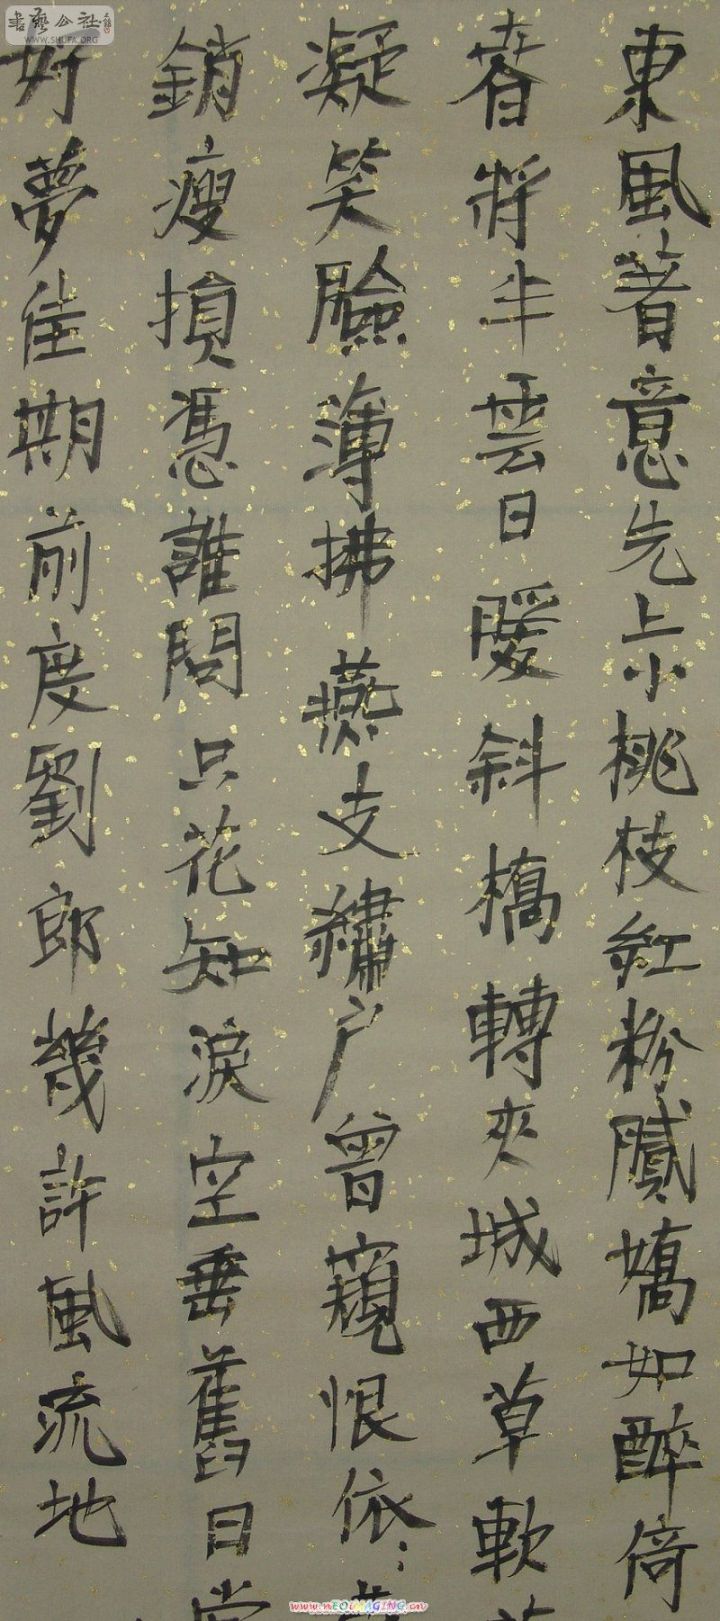 書藝公社
WWW.SHUFA.ORG
東風著意先上小桃枝紅粉膩嬌如醉倚
春將半雲日暖斜橋轉夾城西草軟
凝笑臉薄拂燕支繡戶曾窺恨依〻
銷瘦損憑誰問只花知淚空垂舊日堂
好夢佳期前度劉郎幾許風流地
www.nEOiMAGING.cn